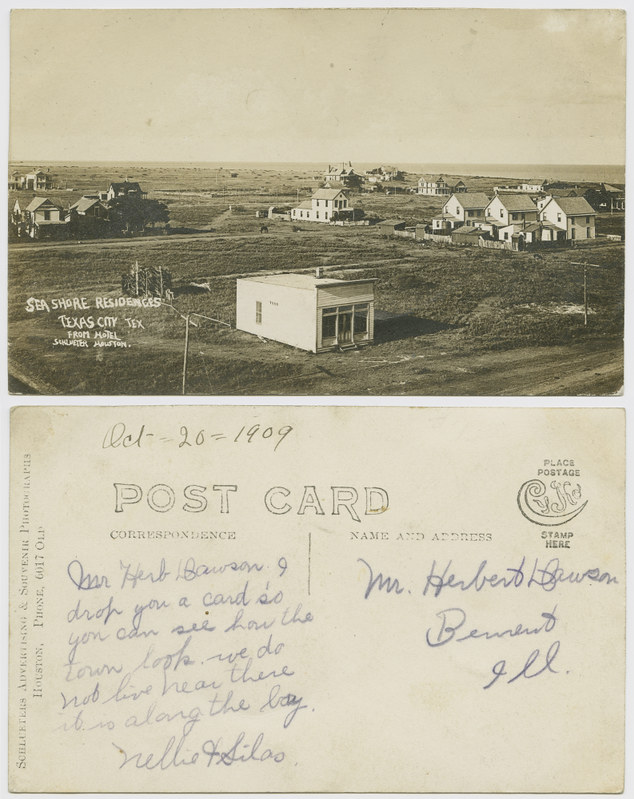 SEA SHORE RESIDENCES
TEXAS CITY TEX
FROM HOTEL
SCHLUETER HOUSTON.
Oct-20=1909
POST CARD
PLACE
POSTAGE
STAMP
HERE
CORRESPONDENCE
NAME AND ADDRESS
SCHLUETERS ADVERTISING & SOUVENIR PHOTOGRAPHS
HOUSTON, PHONE, 6017 OLD
Mr Herb Dawson. I
drop you a card so
you can see how the
town look. we do
not live near there
it is along the bay.
Nellie & Silas.
Mr. Herbert Dawson
Bement
Ill.